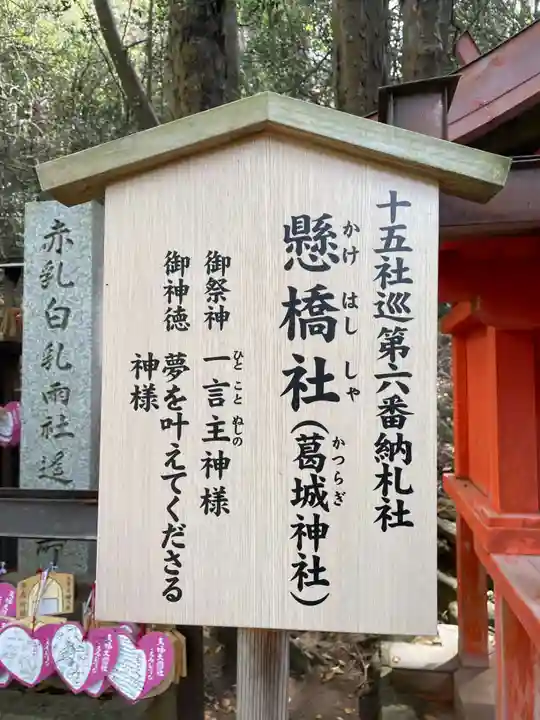 十五社巡第六番納札社
かけ はし しゃ
懸橋社(葛城神社)
かつらぎ
御祭神 一言主神様
ひと こと ぬしの
御神徳 夢を叶えてくださる
神様
赤乳白乳両社遥